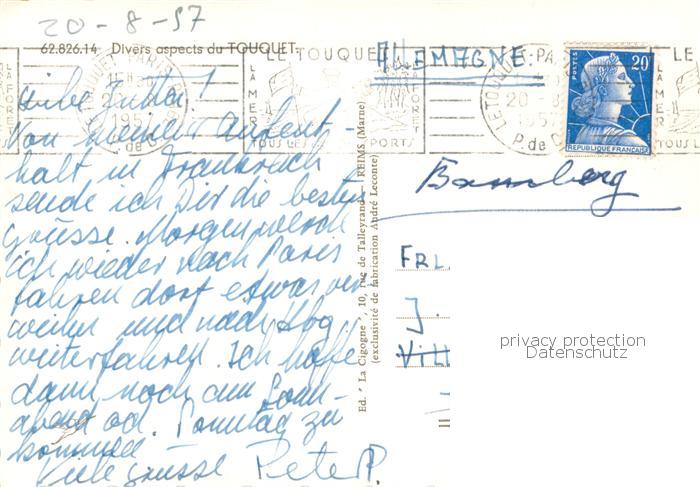 20-8-57
62.826.14 Divers aspects du TOUQUET.
LE TOUQUET
LA FORET
LA MER
TOUS LES SPORTS
LE TOUQUET-PARIS
20-8
1957
P. de C.
ALLEMAGNE:
POSTES
20F
REPUBLIQUE FRANÇAISE
Liebe Jutta!
Von meinem Aufent-
halt in Frankreich
sende ich Dir die besten
Grüsse. Morgen werde
ich wieder nach Paris
fahren dort etwas ver
weilen und nach
weiterfahren. Ich hoffe
dann noch am Sonn-
abend od. Sonntag zu
kommen.
Viele Grüsse Peter P.
Ed. "La Cigogne", 10, rue de Talleyrand - REIMS (Marne)
(exclusivité de fabrication André Leconte)
Bamberg
FRL.
J.
VILL
privacy protection
Datenschutz